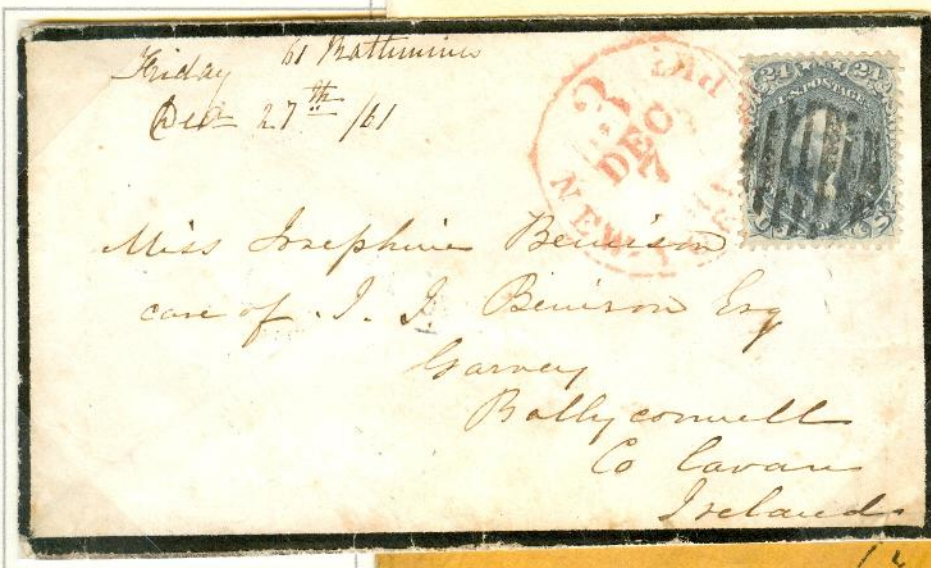 Friday 61
Dec 27th /61
3
PKT
DEC
7
NEW
24 24
U.S. POSTAGE
Miss Josephine Benison
care of J. J. Benison Esq
Ballyconnell
Co Cavan
Ireland